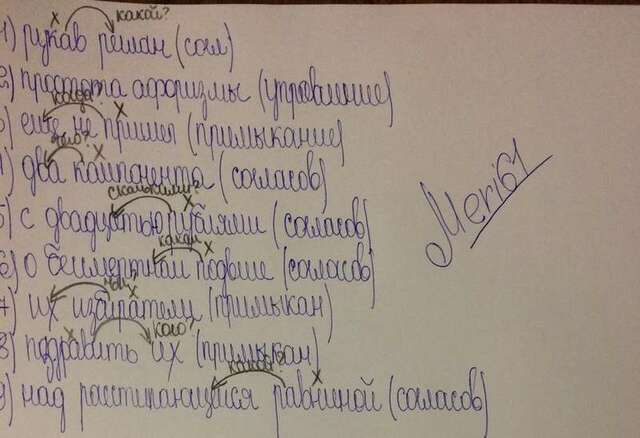 какой?
1) рукав реглан (согл)
2) простота афоризмы (управление)
когда?
3) еще не пришел (примыкание)
чего?
4) два компонента (согласов)
сколькими?
5) с двадцатью рублями (согласов)
каком
6) о бессмертном подвиге (согласов)
чьи?
7) их избиратели (примыкан)
кого?
8) поздравить их (примыкан)
какой?
9) над расстилающейся равниной (согласов)
Meri61